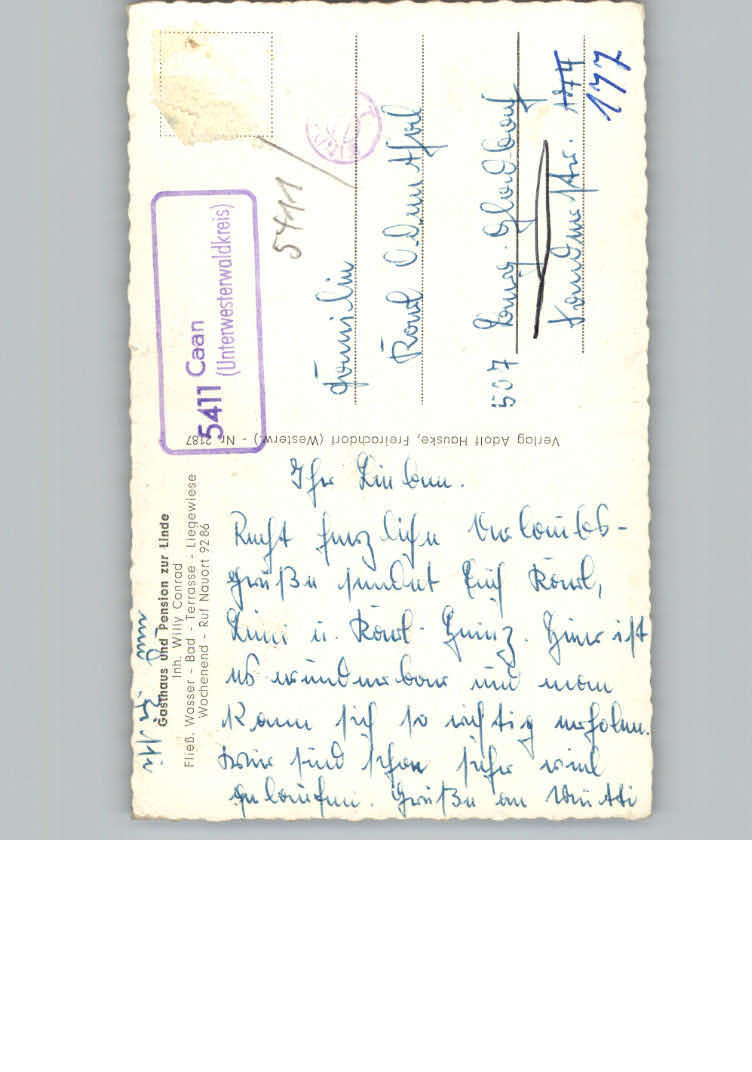 Gasthaus und Pension zur Linde
Inh. Willy Conrad
Fließ. Wasser - Bad - Terrasse - Liegewiese
Wochenend - Ruf Nauort 9286
Ihr Lieben.
Recht herzliche Urlaubs-
grüße sendet Euch Karl,
Leni u. Karl-Heinz. Hier ist
es wunderbar und man
kann sich so richtig erholen.
Wir sind schon sehr viel
gelaufen. Grüße an Mutti
und
Verlag Adolf Hauske, Freirachdorf (Westerw.) - Nr. 2187
5411 Caan
(Unterwesterwaldkreis)
5411
Familie
Karl
507 Berg. Gladbach
Handstr. 177